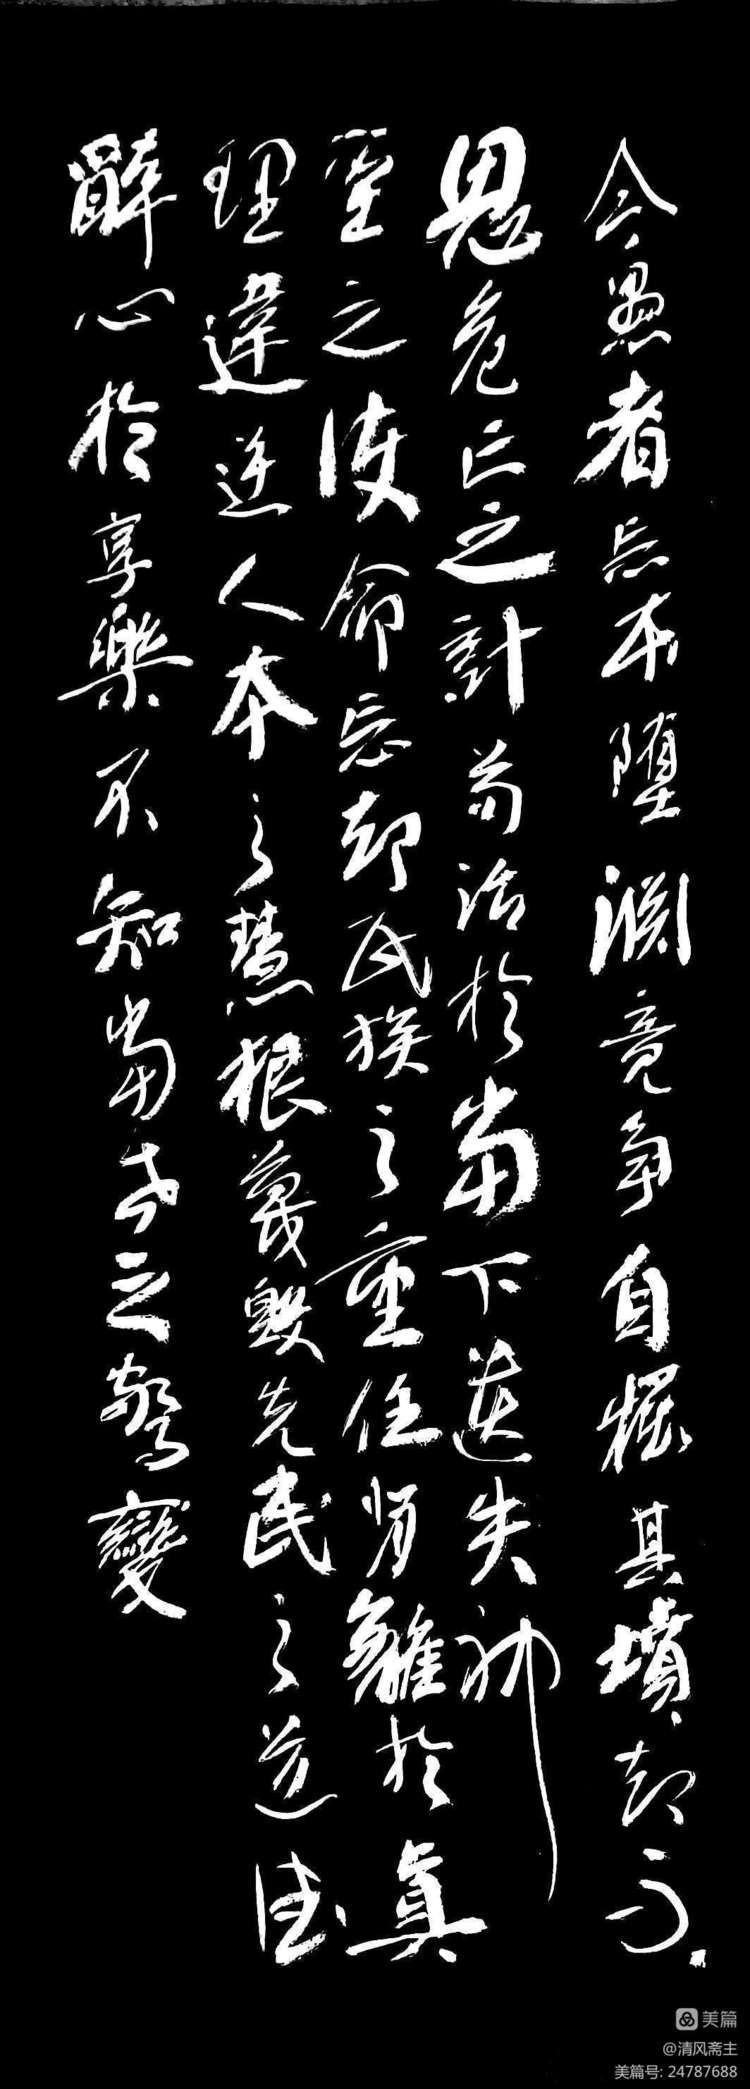 今愚者忘本堕渊竟争自掘其墳却不
思危亡之計苟活於當下迷失神
聖之使命忘却民族之重任背離於真
理違逆人本之慧根蔑毀先民之道德
醉心於享樂不知當世之驚變
美篇
@清风斋主
美篇号: 24787688